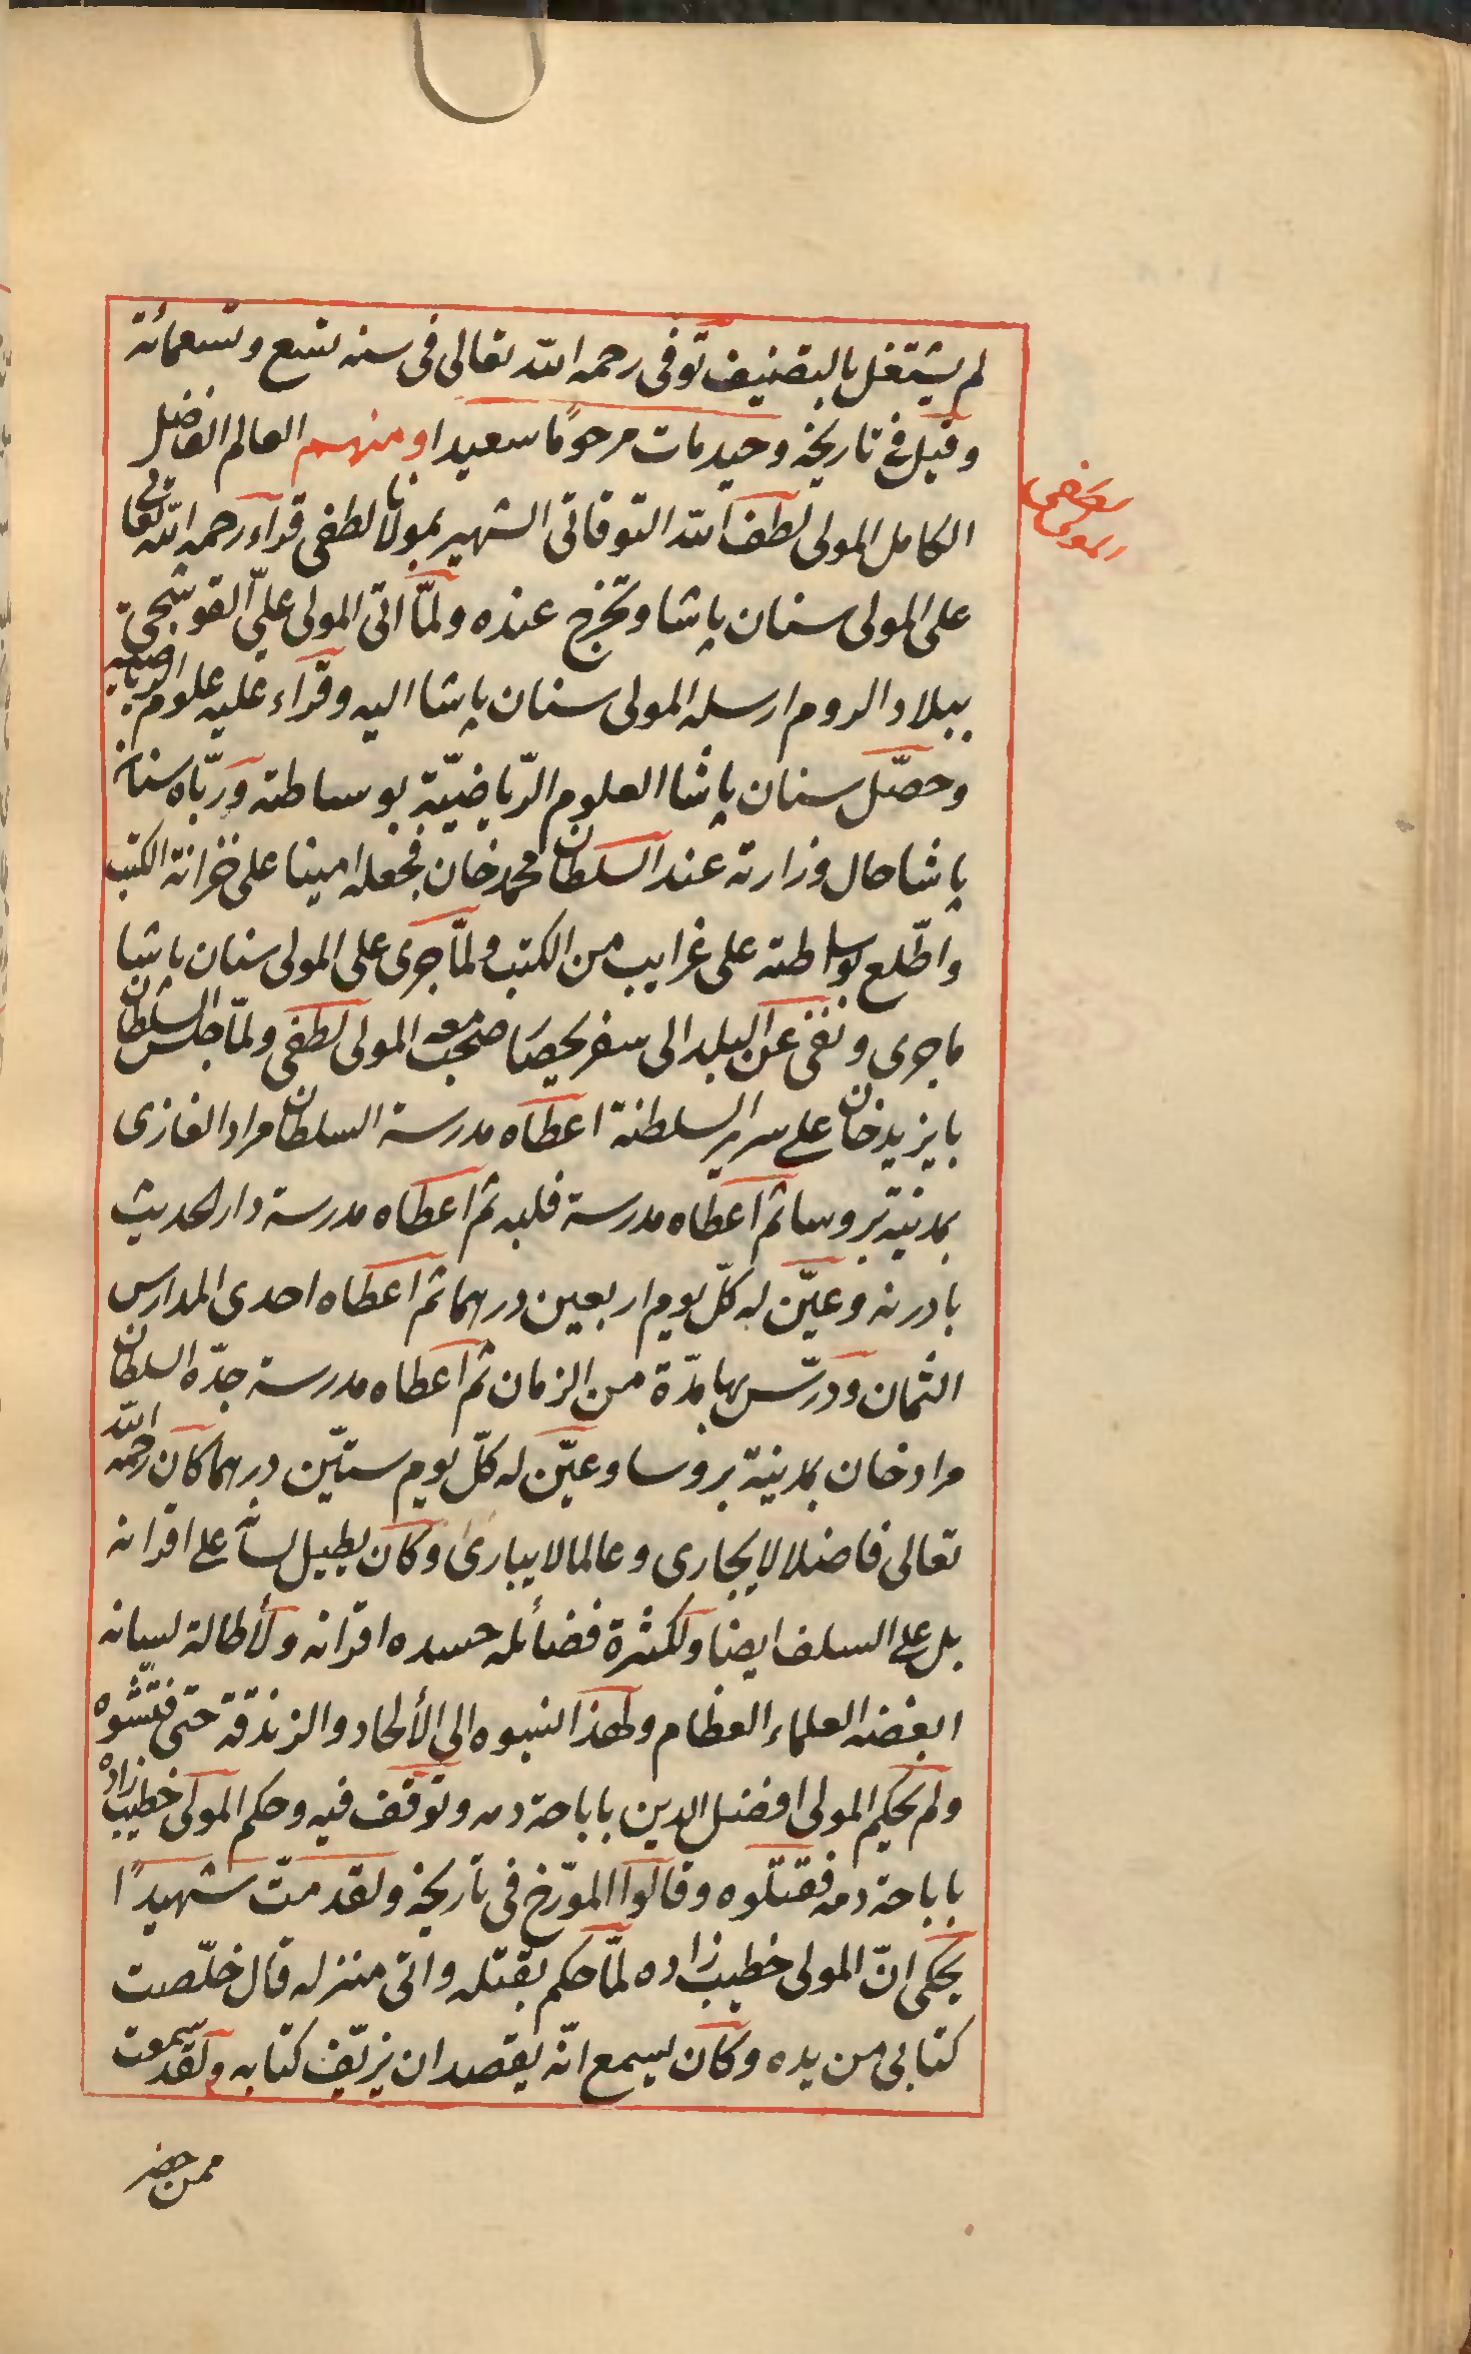 لم يشتغل بالتصنيف توفى رحمه الله تعالى فى سنه تسع وتسعمائة
وقيل فى تاريخه وحيد مات مرحومًا سعيدا ومنهم العالم الفاضل
الكامل المولى لطف الله التوقاتى الشهير بمولانا لطفى قراء رحمه الله تعالى
على المولى سنان پاشا وتخرج عنده ولمّا اتى المولى علىّ القوشجى
ببلاد الروم ارسله المولى سنان پاشا اليه وقراء عليه علوم الرياضيه
وحصّل سنان پاشا العلوم الرّياضيّة بوساطته وربّاه سنان
پاشا حال وزارته عند السلطان محمد خان فجعله امينا على خزانة الكتب
واطّلع بوساطته على غرايب من الكتب ولمّا جرى على المولى سنان پاشا
ماجرى ونفى عن البلد الى سفريحصار صحب معه المولى لطفى ولمّا جلس السلطان
بايزيد خان على سرير السلطنة اعطاه مدرسة السلطان مراد الغازى
بمدينة بروسا ثم اعطاه مدرسة فلبه ثم اعطاه مدرسة دار الحديث
بادرنه وعيّن له كلّ يوم اربعين درهما ثم اعطاه احدى المدارس
الثمان ودرّس بها مدّة من الزمان ثم اعطاه مدرسة جدّه السلطان
مراد خان بمدينة بروسا وعيّن له كلّ يوم ستيّن درهما كان رحمه الله
تعالى فاضلا لا يجارى وعالما لا يبارى وكان يطيل لسانه على اقرانه
بل على السلف ايضا ولكثرة فضائله حسده اقرانه ولأطالة لسانه
ابغضه العلماء العظام ولهذا نسبوه الى الألحاد والزندقة حتى فتّشوه
ولم يحكم المولى افضل الدين باباحة دمه وتوقف فيه وحكم المولى خطيب زاده
باباحة دمه فقتلوه وقالوا المورّخ فى تاريخه ولقد متّ شهيدًا
يحكى انّ المولى خطيب زاده لمّا حكم بقتله واتى منزله قال خلّصت
كتابى من يده وكان يسمع انّه يقصد ان يزيّف كتابه ولقد سمعت
ممن حضر
المولى لطفى